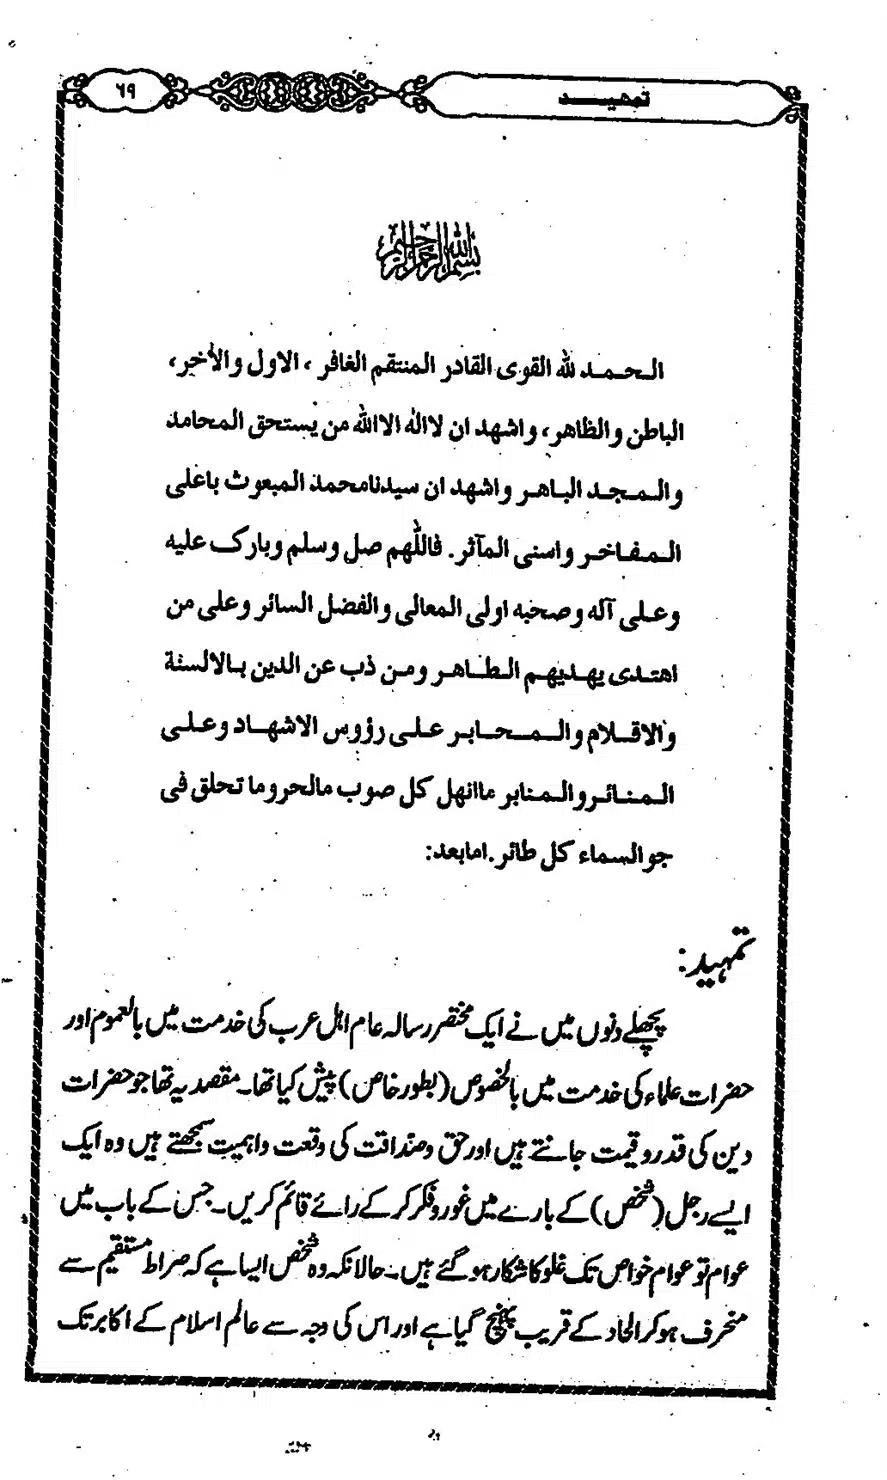 تمہیـــد
٦٩
بسم الله الرحمن الرحيم
الـحـمـد لله القوى القادر المنتقم الغافر ، الاول والأخر،
الباطن والظاهر، واشهد ان لااله الاالله من يستحق المحامد
والـمـجـد البـاهـر واشهد ان سيدنامحمد المبعوث باعلى
الـمـفـاخـر واسنى المآثر. فاللهم صل وسلم وبارك عليه
وعـلـى آله وصحبه اولى المعالى والفضل السائر وعلى من
اهتـدى بهـديهـم الـطـاهـر ومـن ذب عن الدين بـالالسنة
والاقـلام والـمـحـابـر عـلـى رؤوس الاشهـاد وعـلـى
الـمـنـائـر والـمنابر ماانهل كل صوب مالحر وما تحلق فى
جو السماء كل طائر. امابعد:
تمہید:
پچھلے دنوں میں نے ایک مختصر رسالہ عام اہل عرب کی خدمت میں بالعموم اور
حضرات علماء کی خدمت میں بالخصوص (بطور خاص) پیش کیا تھا۔ مقصد یہ تھا جو حضرات
دین کی قدر و قیمت جانتے ہیں اور حق و صداقت کی وقعت و اہمیت سمجھتے ہیں وہ ایک
ایسے رجل (شخص) کے بارے میں غور و فکر کر کے رائے قائم کریں۔ جس کے باب میں
عوام تو عوام خواص تک غلو کا شکار ہو گئے ہیں۔ حالانکہ وہ شخص ایسا ہے کہ صراط مستقیم سے
منحرف ہو کر الحاد کے قریب پہنچ گیا ہے اور اس کی وجہ سے عالم اسلام کے اکابر تک